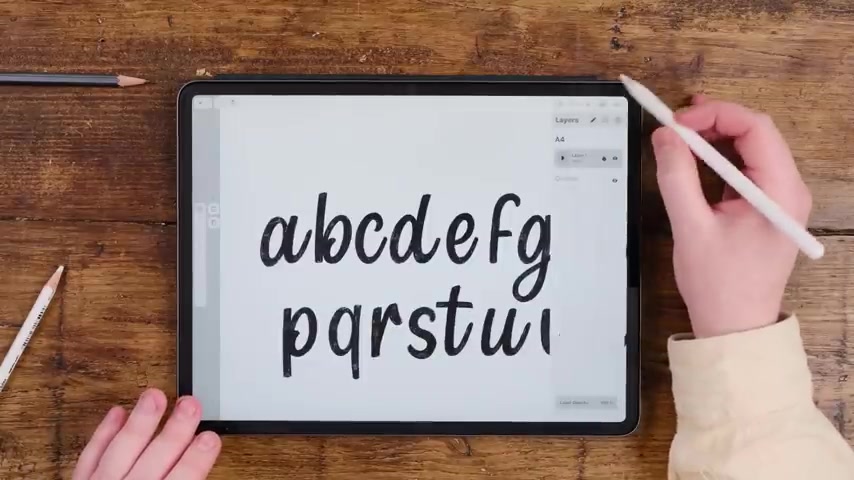 Layers
A4
abcdefg
pqrstu